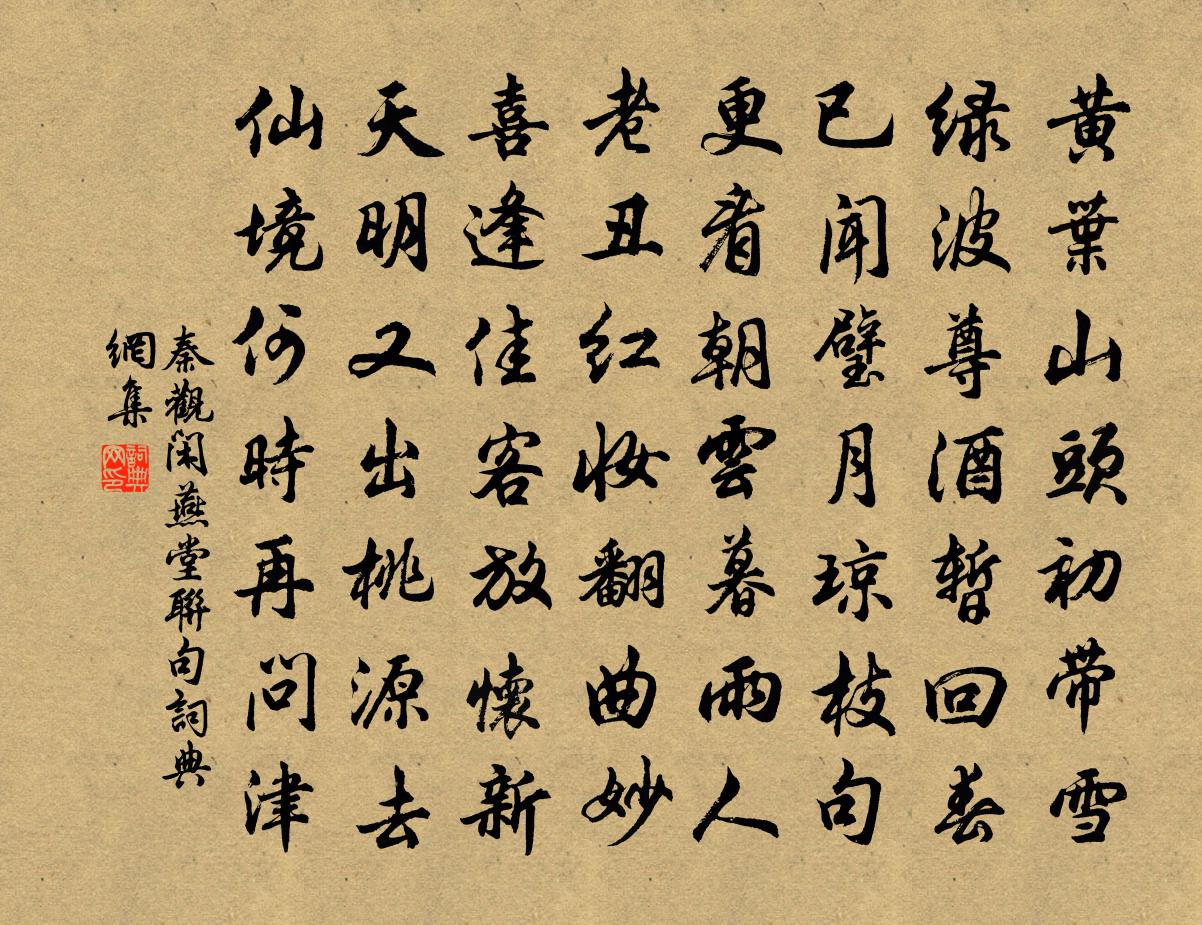 黄葉山頭初带雪
绿波尊酒暫回春
已聞璧月琼枝句
更看朝雲暮雨人
老丑红妝翻曲妙
喜逢佳客放懷新
天明又出桃源去
仙境何時再問津
秦觀閑燕堂聯句詞典
網集
詞典
网印